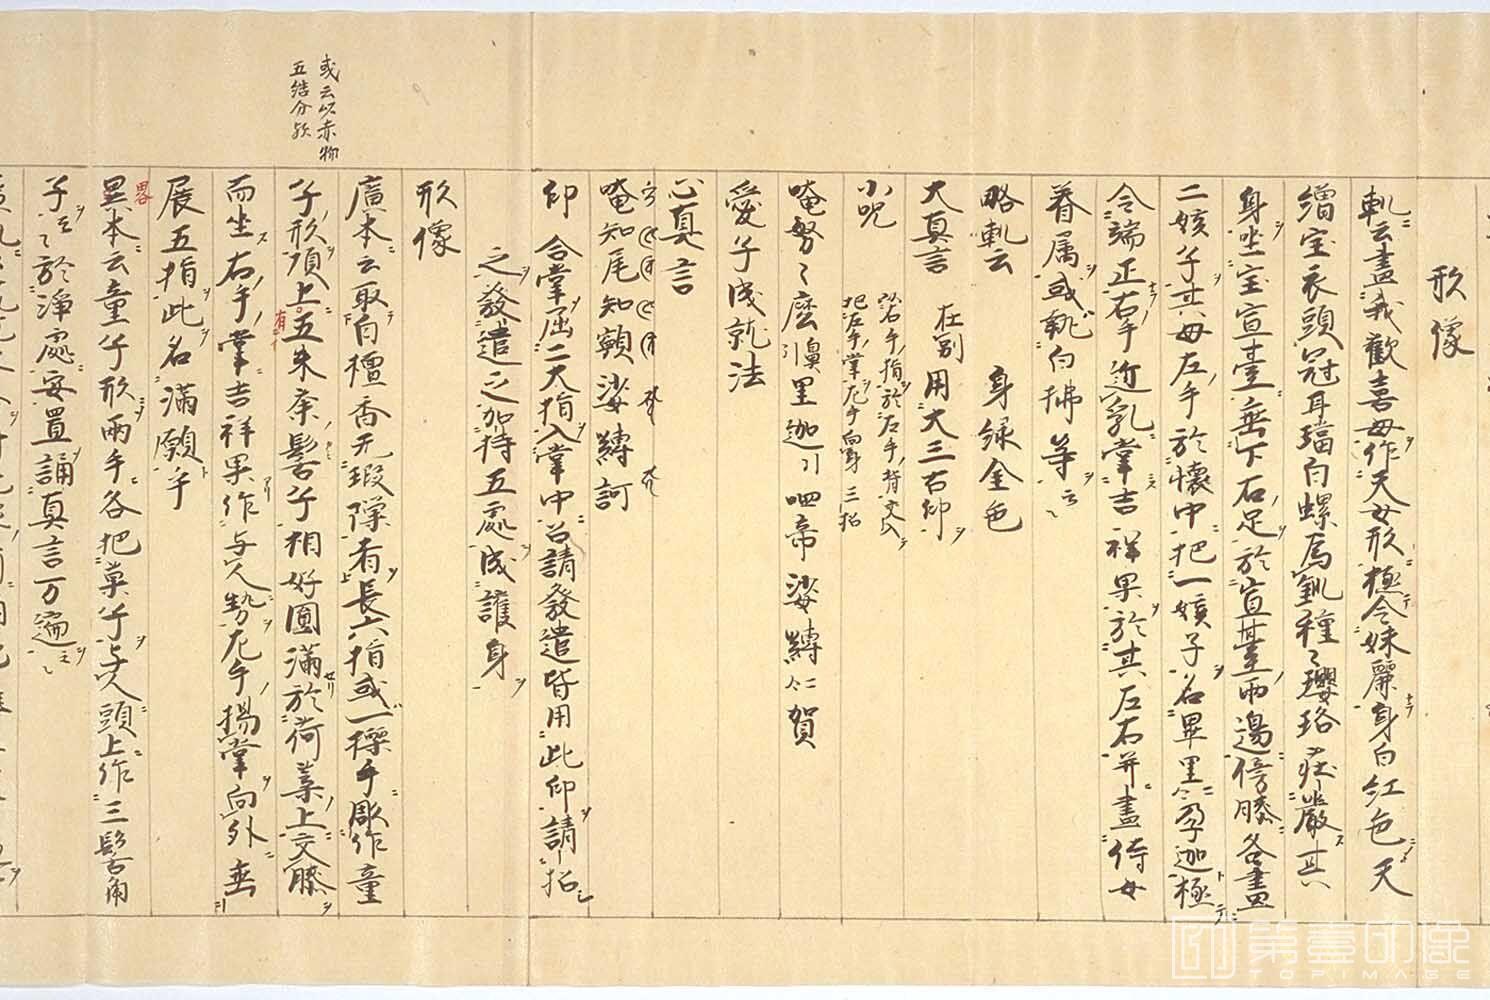 形像
軌云畫我歡喜母作天女形極令姝麗身白紅色天
繒宝衣頭冠耳璫白螺爲釧種〻瓔珞莊嚴其
身坐宝宣臺垂下右足於宣臺兩邊傍膝各畫
二孩子其母左手於懷中把一孩子名畢里孕迦極
令端正右手近乳掌吉祥果於其左右并畫侍女
眷属或執白拂等云〻
略軌云 身緑金色
大真言 在別 用大三古印
小呪 以右手指於左手背
把左手掌 左手向身三招
唵弩〻麼引里迦引呬帝娑縛賀
愛子成就法
心真言
唵知尾知𩕳娑縛訶
印 合掌屈二大指入掌中召請發遣皆用此印請召
之發遣之加持五處成護身
形像
或云以赤物
五結分於
廣本云取白檀香无瑕隟者長六指或一搩手彫作童
子形頂上五朱奈髻子相好圓滿於荷葉上交膝
有
而坐右手掌吉祥果作与人勢左手揚掌向外垂
展五指此名滿願手
略
異本云童子形兩手各把菓子与人頭上作三髻角
子云〻於淨處安置誦真言万遍云〻